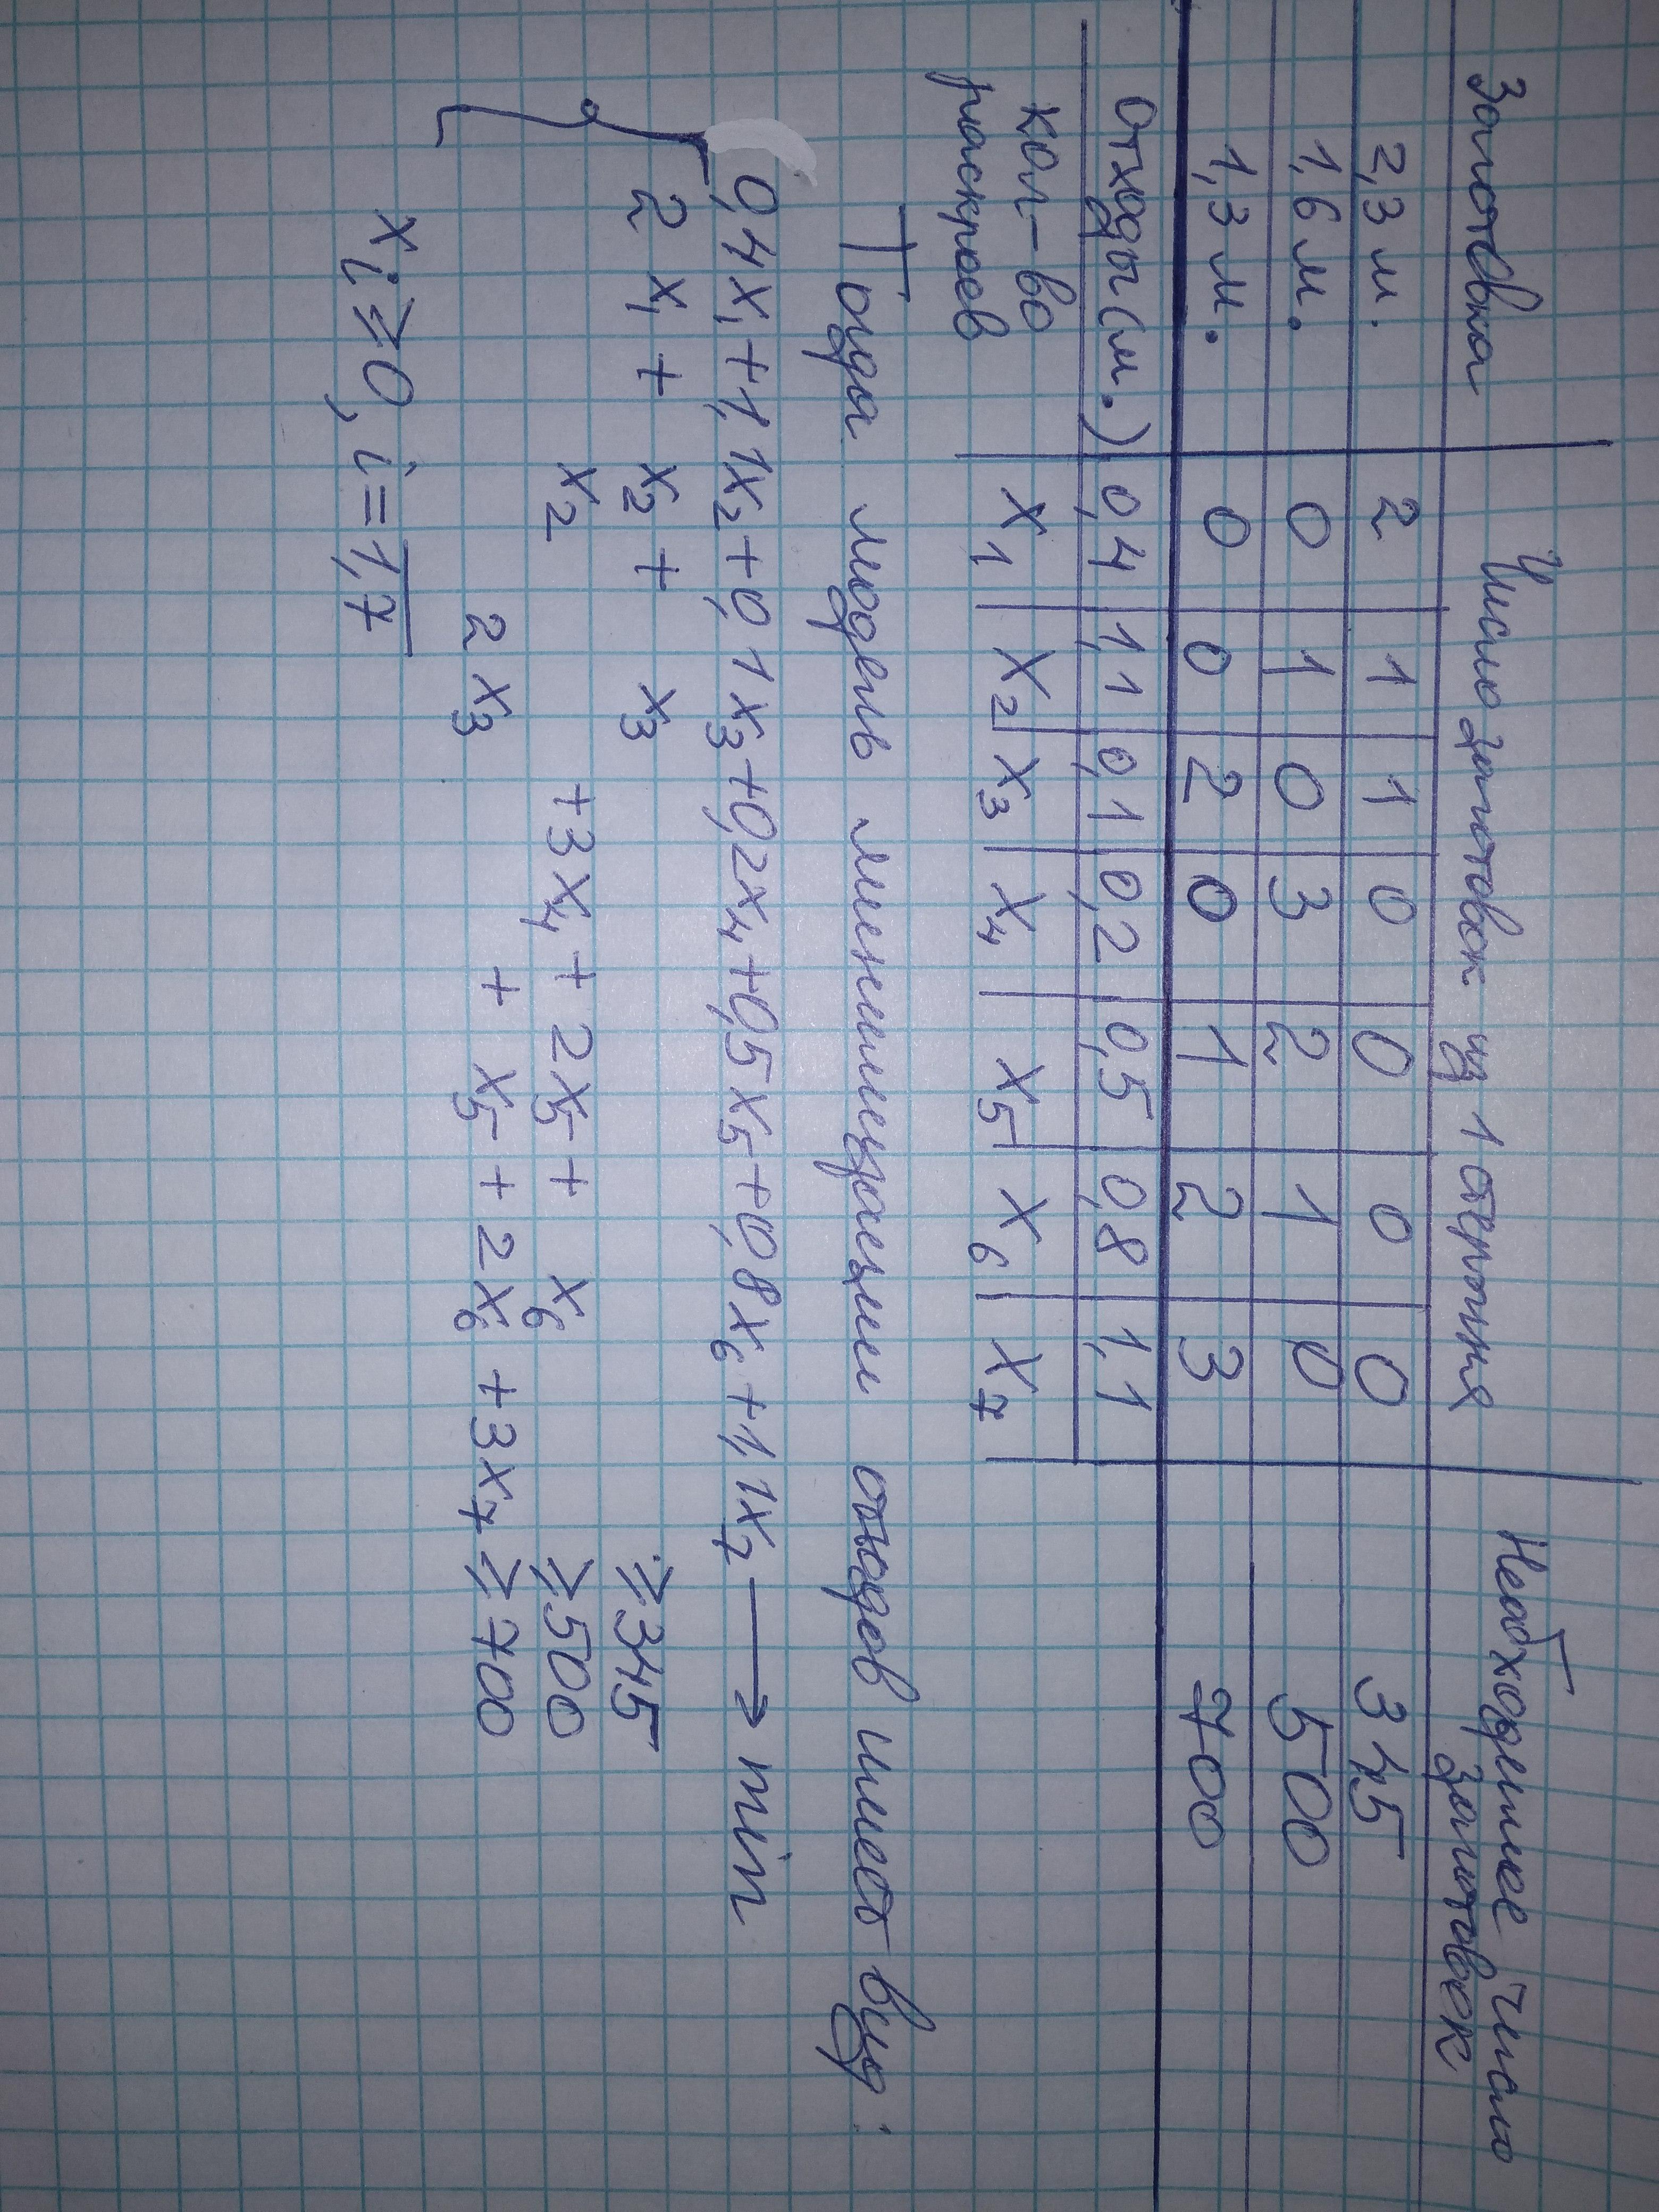 Заготовка Число заготовок из 1 стержня Необходимое число заготовок
2,3 м. 2 1 1 0 0 0 0 345
1,6 м. 0 1 0 3 2 1 0 500
1,3 м. 0 0 2 0 1 2 3 700
отходы (м.) 0,4 1,1 0,1 0,2 0,5 0,8 1,1
кол-во раскроев x₁ x₂ x₃ x₄ x₅ x₆ x₇
Тогда модель минимизации отходов имеет вид:
0,4x₁+1,1x₂+0,1x₃+0,2x₄+0,5x₅+0,8x₆+1,1x₇ → min
2x₁ + x₂ + x₃ ≥ 345
x₂ +3x₄ + 2x₅ + x₆ ≥ 500
2x₃ + x₅ + 2x₆ + 3x₇ ≥ 700
xᵢ ≥ 0, i = 1,7